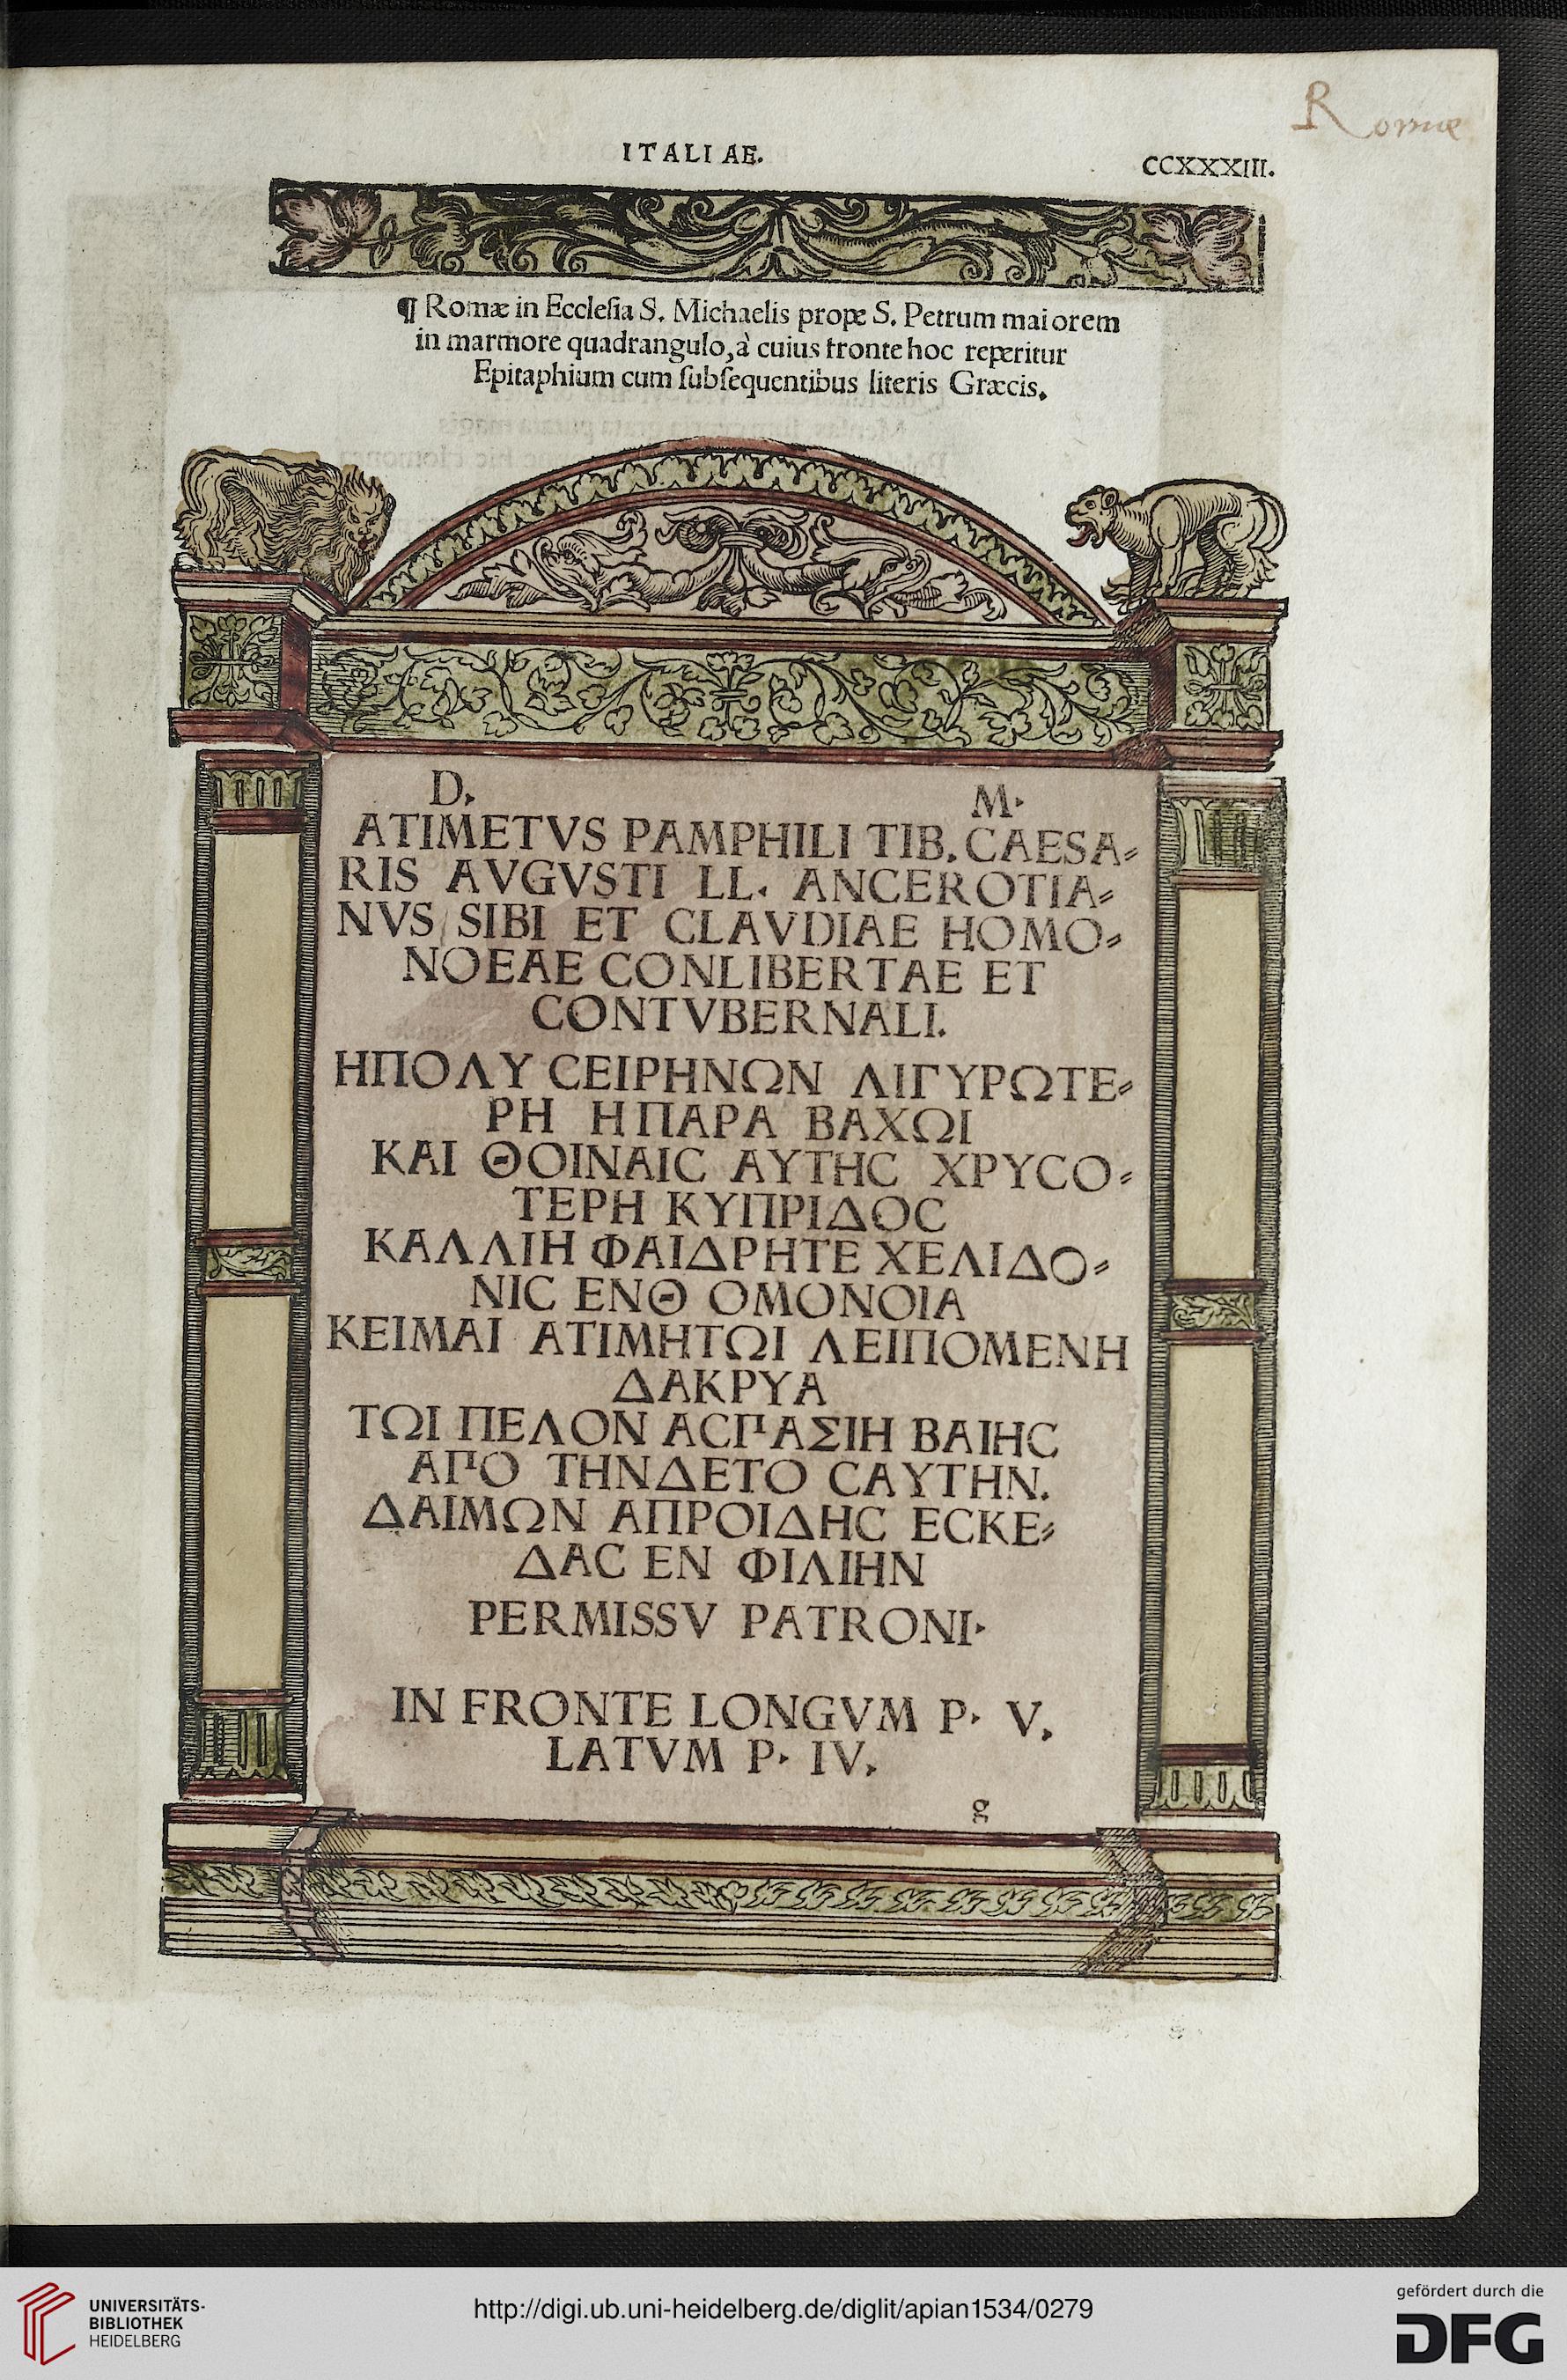 Romæ
ITALIAE.
CCXXXIII.
¶ Romæ in Eccleſia S. Michaelis prope S. Petrum maiorem
in marmore quadrangulo, à cuius fronte hoc reperitur
Epitaphium cum ſubſequentibus literis Græcis.
D. M.
ATIMETVS PAMPHILI TIB. CAESA⸗
RIS AVGVSTI LL. ANCEROTIA⸗
NVS SIBI ET CLAVDIAE HOMO⸗
NOEAE CONLIBERTAE ET
CONTVBERNALI.
ΗΠΟΛΥ CΕΙΡΗΝΩΝ ΛΙΓΥΡΩΤΕ⸗
ΡΗ ΗΠΑΡΑ ΒΑΧΩΙ
ΚΑΙ ΘΟΙΝΑΙC ΑΥΤΗC ΧΡΥCΟ⸗
ΤΕΡΗ ΚΥΠΡΙΔΟC
ΚΑΛΛΙΗ ΦΑΙΔΡΗΤΕ ΧΕΛΙΔΟ⸗
ΝΙC ΕΝΘ ΟΜΟΝΟΙΑ
ΚΕΙΜΑΙ ΑΤΙΜΗΤΩΙ ΛΕΙΠΟΜΕΝΗ
ΔΑΚΡΥΑ
ΤΩΙ ΠΕΛΟΝ ΑCΠΑΣΙΗ ΒΑΙΗC
ΑΠΟ ΤΗΝΔΕΤΟ CΑΥΤΗΝ.
ΔΑΙΜΩΝ ΑΠΡΟΙΔΗC ΕCΚΕ⸗
ΔΑC ΕΝ ΦΙΛΙΗΝ
PERMISSV PATRONI.
IN FRONTE LONGVM P. V.
LATVM P. IV.
g
UNIVERSITÄTS-
BIBLIOTHEK
HEIDELBERG
http://digi.ub.uni-heidelberg.de/diglit/apian1534/0279
gefördert durch die
DFG